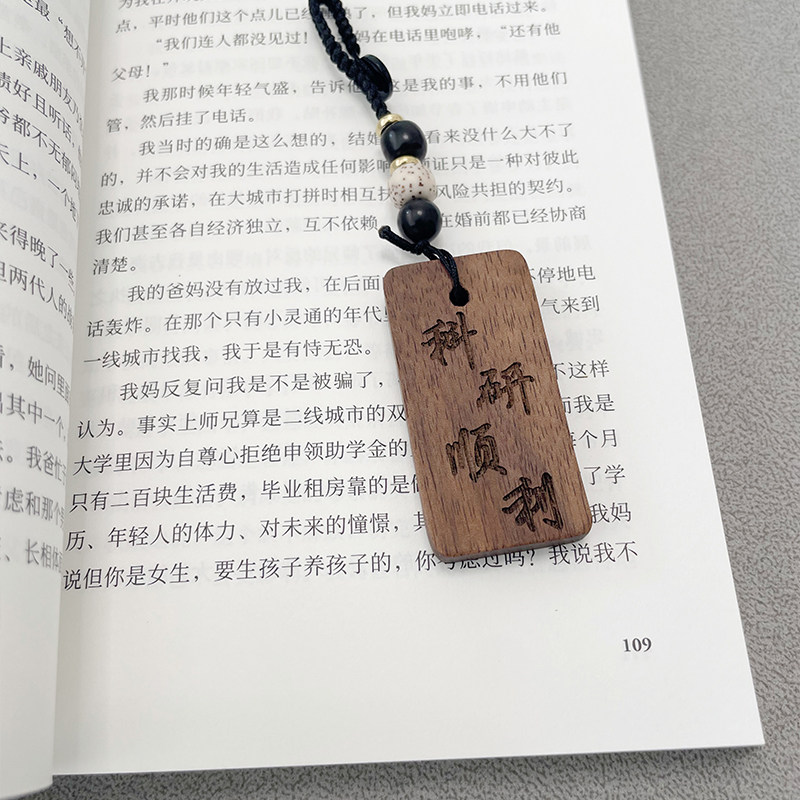 点，平时他们这个点儿已经
了，但我妈立即电话过来。
“我们连人都没见过！”
妈在电话里咆哮，“还有他
父母！”
我那时候年轻气盛，告诉他
这是我的事，不用他们
管，然后挂了电话。
我当时的确是这么想的，结婚
看来没什么大不了
的，并不会对我的生活造成任何影响
证只是一种对彼此
忠诚的承诺，在大城市打拼时相互扶
风险共担的契约。
我们甚至各自经济独立，互不依赖
在婚前都已经协商
清楚。
我的爸妈没有放过我，在后面
不停地电
话轰炸。在那个只有小灵通的年代
气来到
一线城市找我，我于是有恃无恐。
我妈反复问我是不是被骗了，
不这样
认为。事实上师兄算是二线城市的双
而我是
大学里因为自尊心拒绝申领助学金的
每个月
只有二百块生活费，毕业租房靠的是
了学
历、年轻人的体力、对未来的憧憬，其
我妈
说但你是女生，要生孩子养孩子的，你考虑过吗？我说我不
109
科研顺利
上亲戚朋友
绩好且听话，
爷都不无郁
天上，一个
来得晚了一些
但两代人的
看，她问里
出其中一个，
去。我爸忙
考虑和那个
、长相体